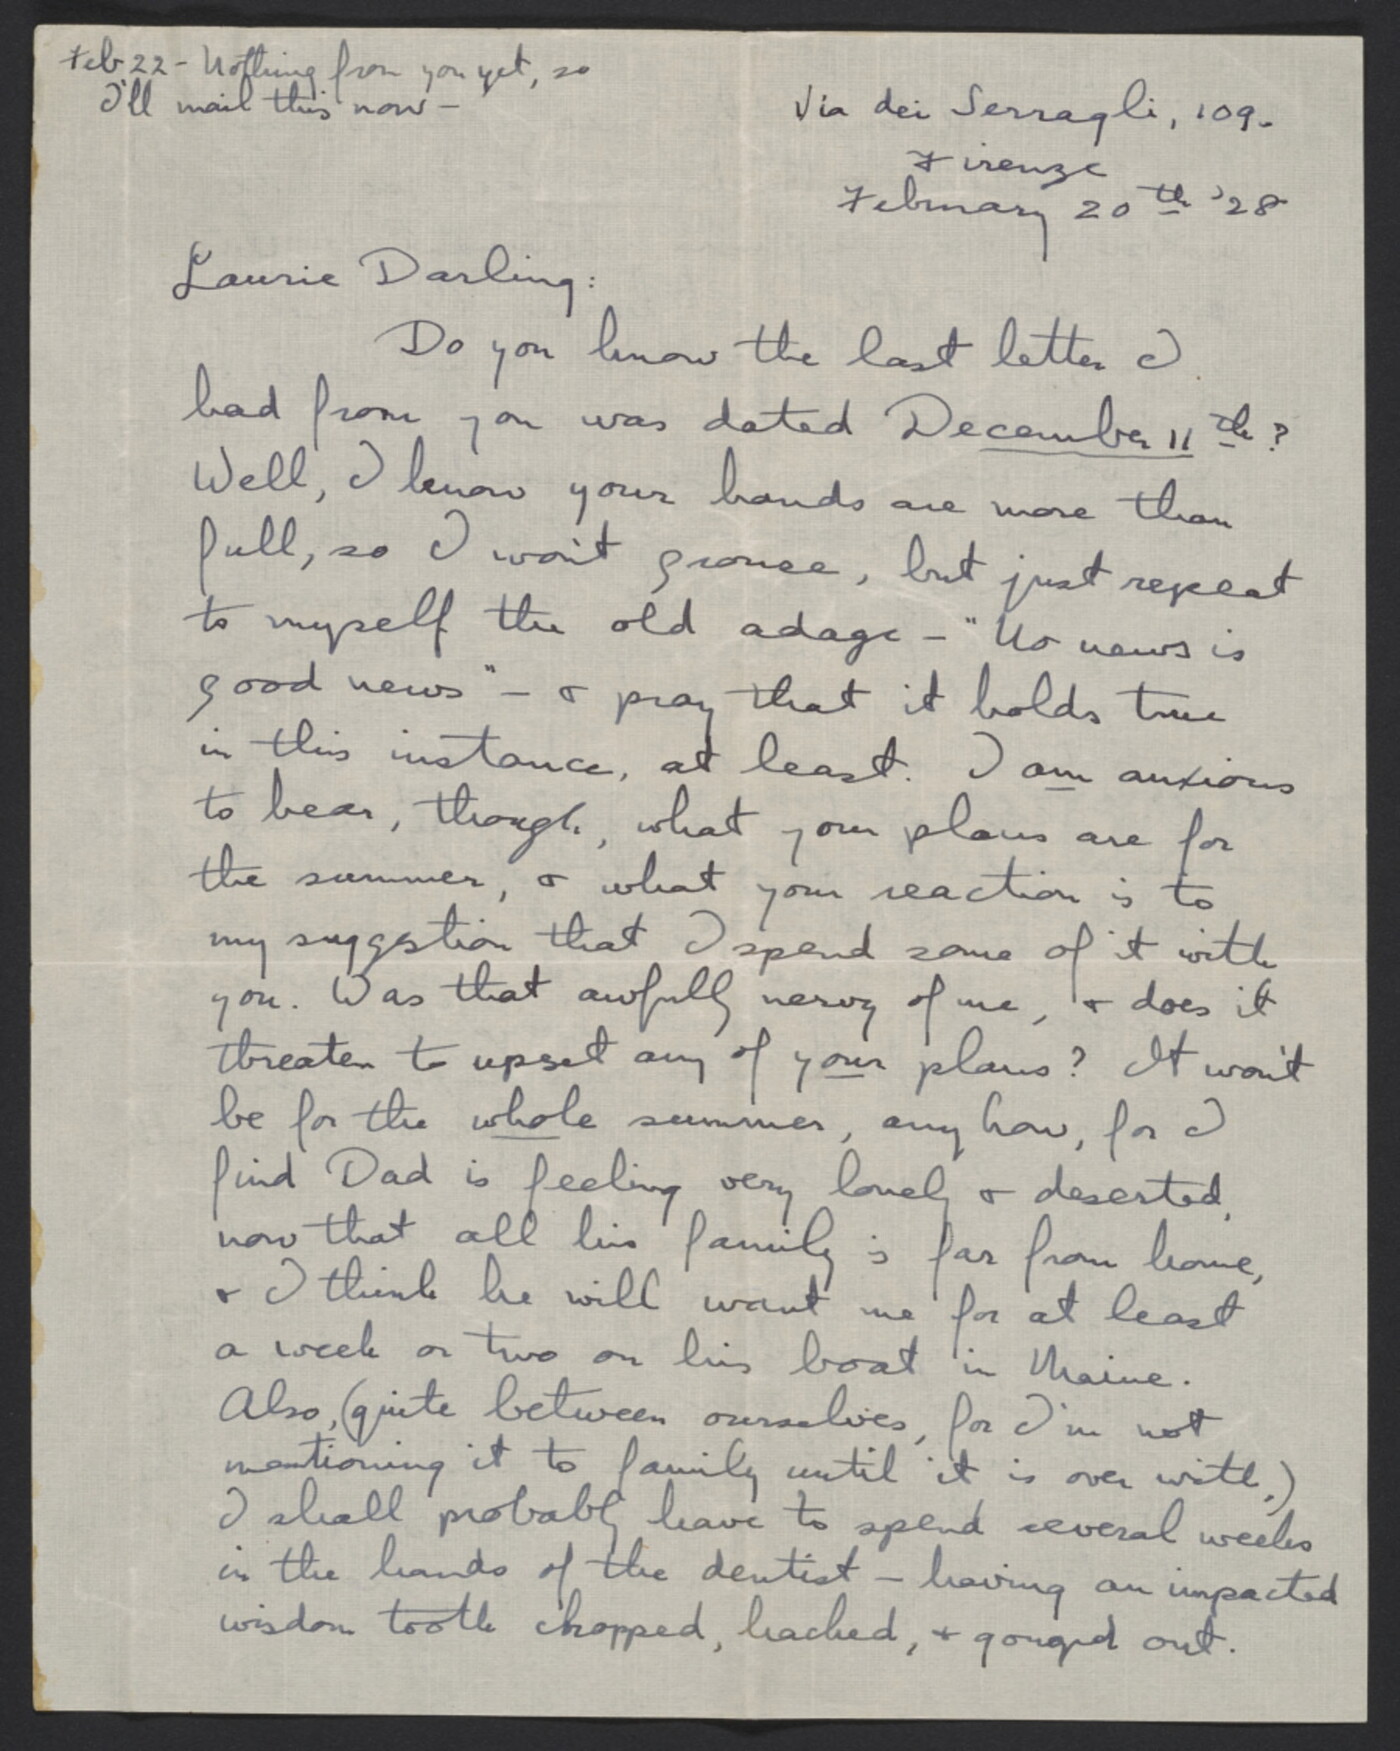 Feb 22 - Nothing from you yet, so
I'll mail this now -
Via dei Serragli, 109.
Firenze
February 20th '28
Laurie Darling:
Do you know the last letter I
had from you was dated December 11th?
Well, I know your hands are more than
full, so I won't grouse, but just repeat
to myself the old adage - "No news is
good news" - & pray that it holds true
in this instance, at least. I am anxious
to hear, though, what your plans are for
the summer, & what your reaction is to
my suggstion that I spend some of it with
you. Was that awfully nervy of me, & does it
threaten to upset any of your plans? It won't
be for the whole summer, anyhow, for I
find Dad is feeling very lonely & deserted,
now that all his family is far from home,
& I think he will want me for at least
a week or two on his boat in Maine.
Also, (quite between ourselves, for I'm not
mentioning it to family until it is over with,)
I shall probably have to spend several weeks
in the hands of the dentist - having an impacted
wisdom tooth chopped, hacked, & gouged out.